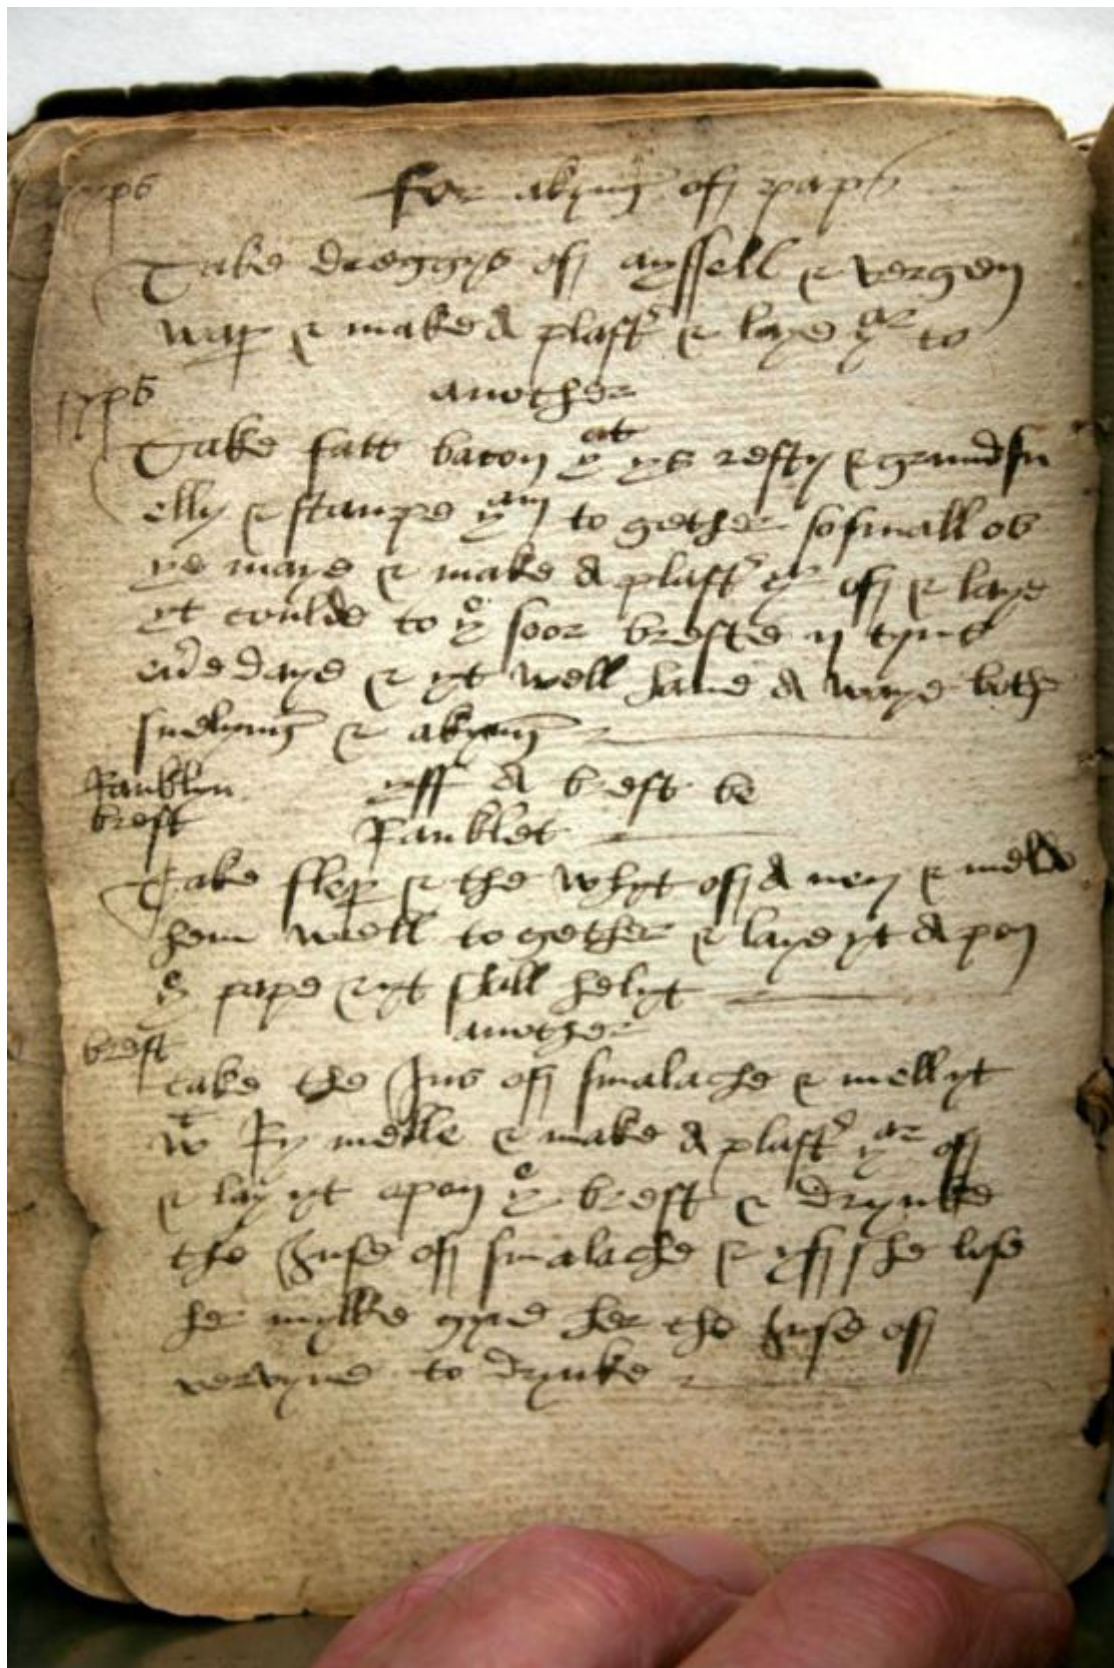 for akyng off paps
Take dreggys off ayssell & vergen
wax & make A plast & laye yar to
another
Take fatt bacon yat ys resty & grundsu
elly & stampe yam to gether so small os
ye maye & make A plast yr off & laye
yt coulde to ye soor breste ij tymes
eùe daye & yt well have A waye both
suelyng & akyng
Ranklyn yff A brest be
brest Ranklet
Take & the whyt off A ney & melle
hem well to gether & laye yt A pon
ye pape & yt shall helyt
another
brest
take the Jus off smalache & mell yt
wt Ry melle & make A plast yar off
& lay yt apon ye brest & drynke
the Juse off smalache & yff she lose
her mylke gyve her the Juse off
vervyne to drynke